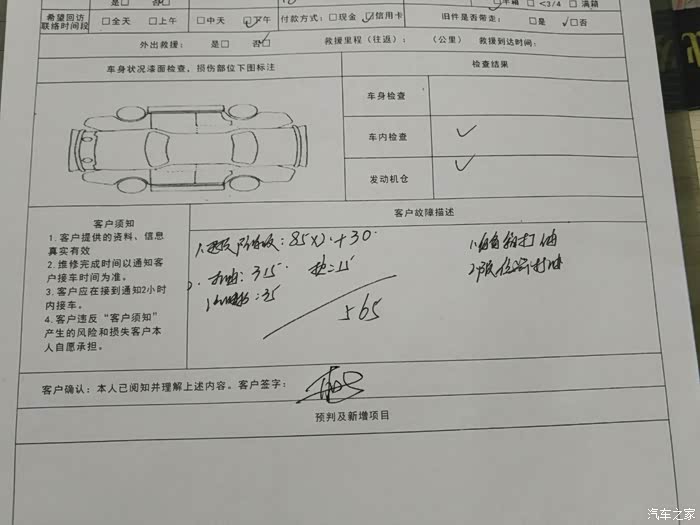 是□ 否□
□半箱 □<3/4 □满箱
希望回访联络时间段 □全天 □上午 □中天 □下午 付款方式：□现金 □信用卡 旧件是否带走：□是 □否
外出救援： 是□ 否□ 救援里程（往返）： （公里） 救援到达时间：
车身状况漆面检查，损伤部位下图标注
检查结果
车身检查
车内检查 ✓
发动机仓 ✓
客户须知
1.客户提供的资料、信息
真实有效
2.维修完成时间以通知客
户接车时间为准。
3.客户应在接到通知2小时
内接车。
4.客户违反“客户须知”
产生的风险和损失客户本
人自愿承担。
客户故障描述
85×2+30
315
35
565
客户确认：本人已阅知并理解上述内容。客户签字：
预判及新增项目
汽车之家